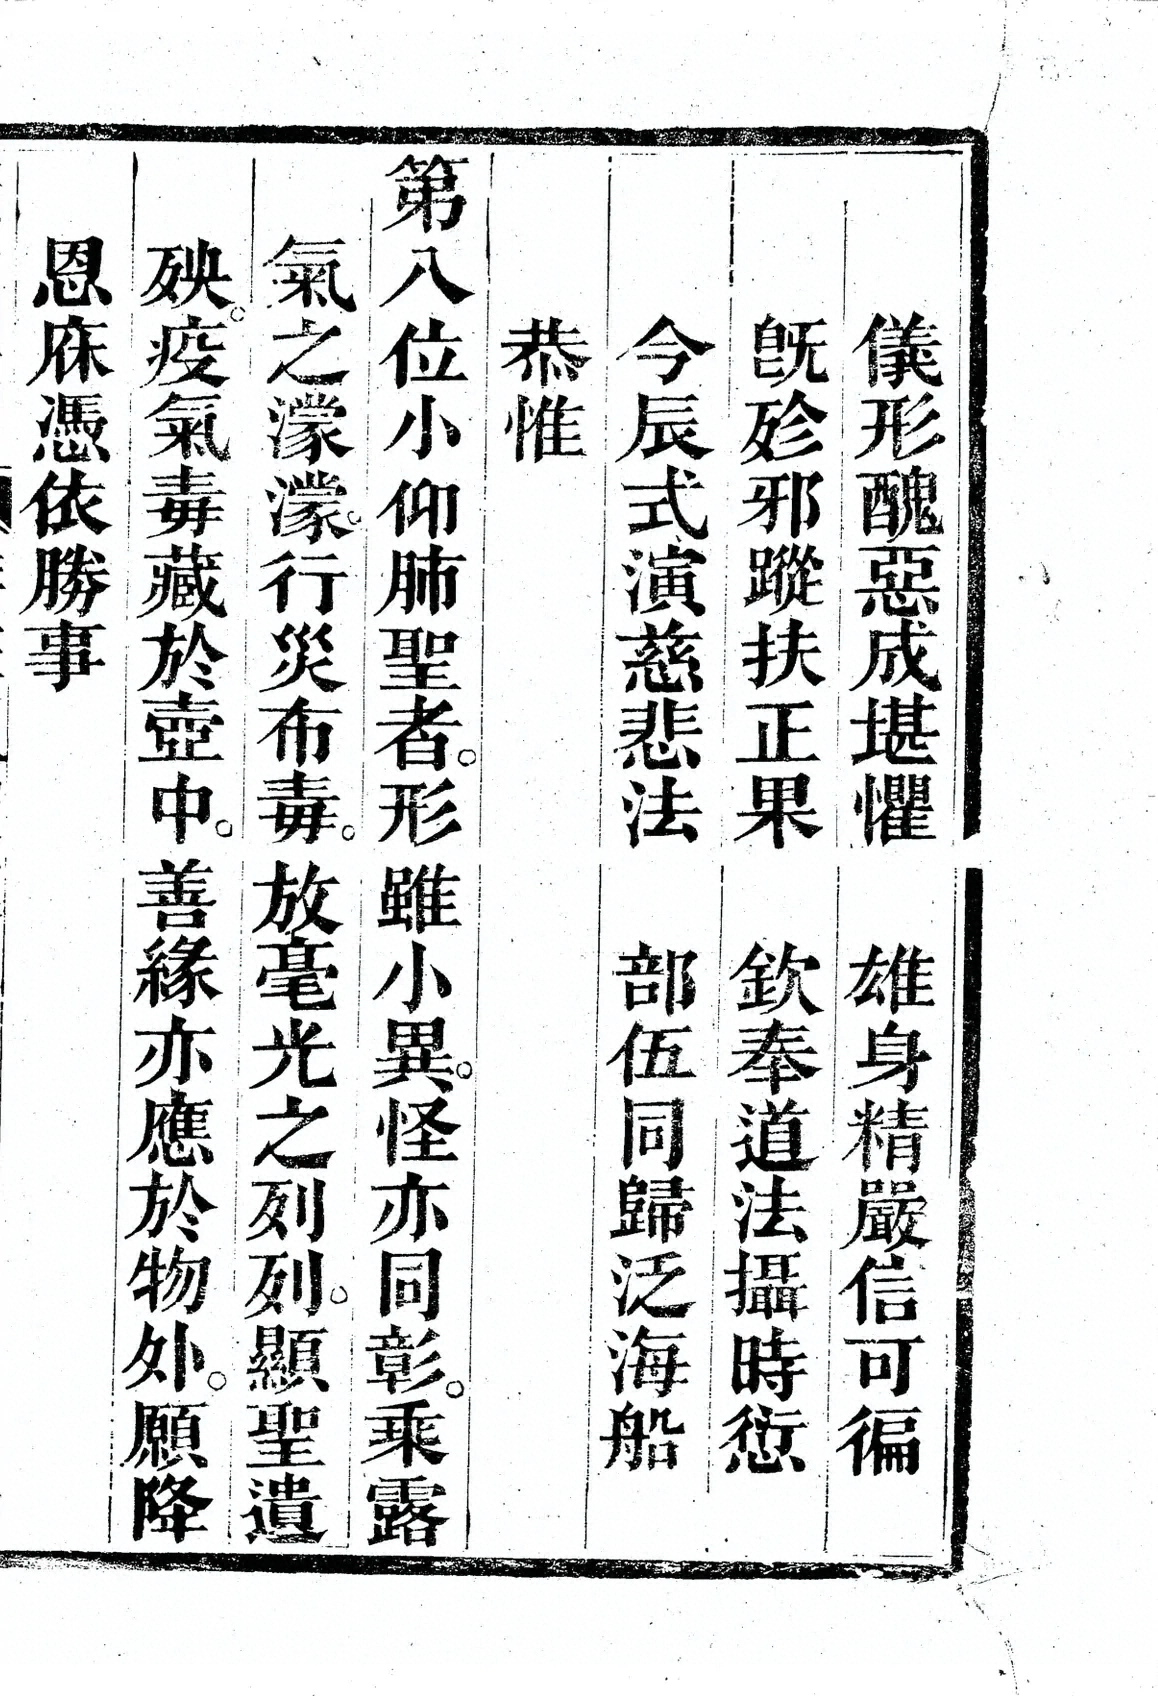 儀形醜惡成堪懼　雄身精嚴信可徧
旣殄邪蹤扶正果　欽奉道法攝時愆
今辰式演慈悲法　部伍同歸泛海船
恭惟
第八位小仰肺聖者。形雖小異。怪亦同彰。乘露
氣之濛濛。行災布毒。放毫光之列列。顯聖遺
殃。疫氣毒藏於壺中。善緣亦應於物外。願降
恩庥憑依勝事